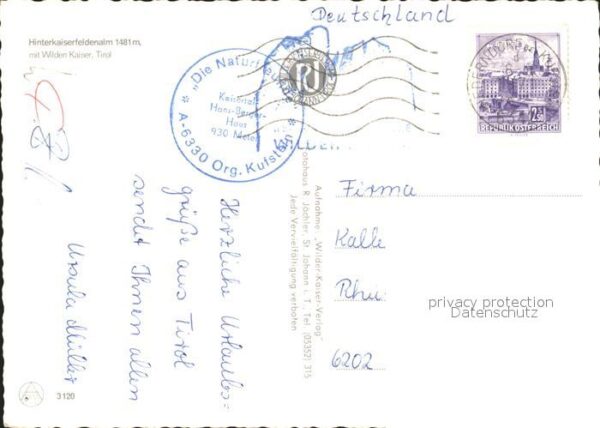 Deutschland
Hinterkaiserfeldenalm 1481 m,
mit Wilden Kaiser, Tirol
„Die Naturfreunde"
Kaisertal
Hans-Berger-
Haus
930 Meter
* A-6330 Org. Kufstein *
REPUBLIK ÖSTERREICH
Herzliche Urlaubs=
grüße aus Tirol
sendet Ihnen allen
Ursula Müller
Aufnahme: „Wilder-Kaiser-Verlag"
Fotohaus R. Jöchler, St. Johann i. T., Tel. (05352) 315
Jede Vervielfältigung verboten
Firma
Kalle
Rhu
6202
privacy protection
Datenschutz
3120